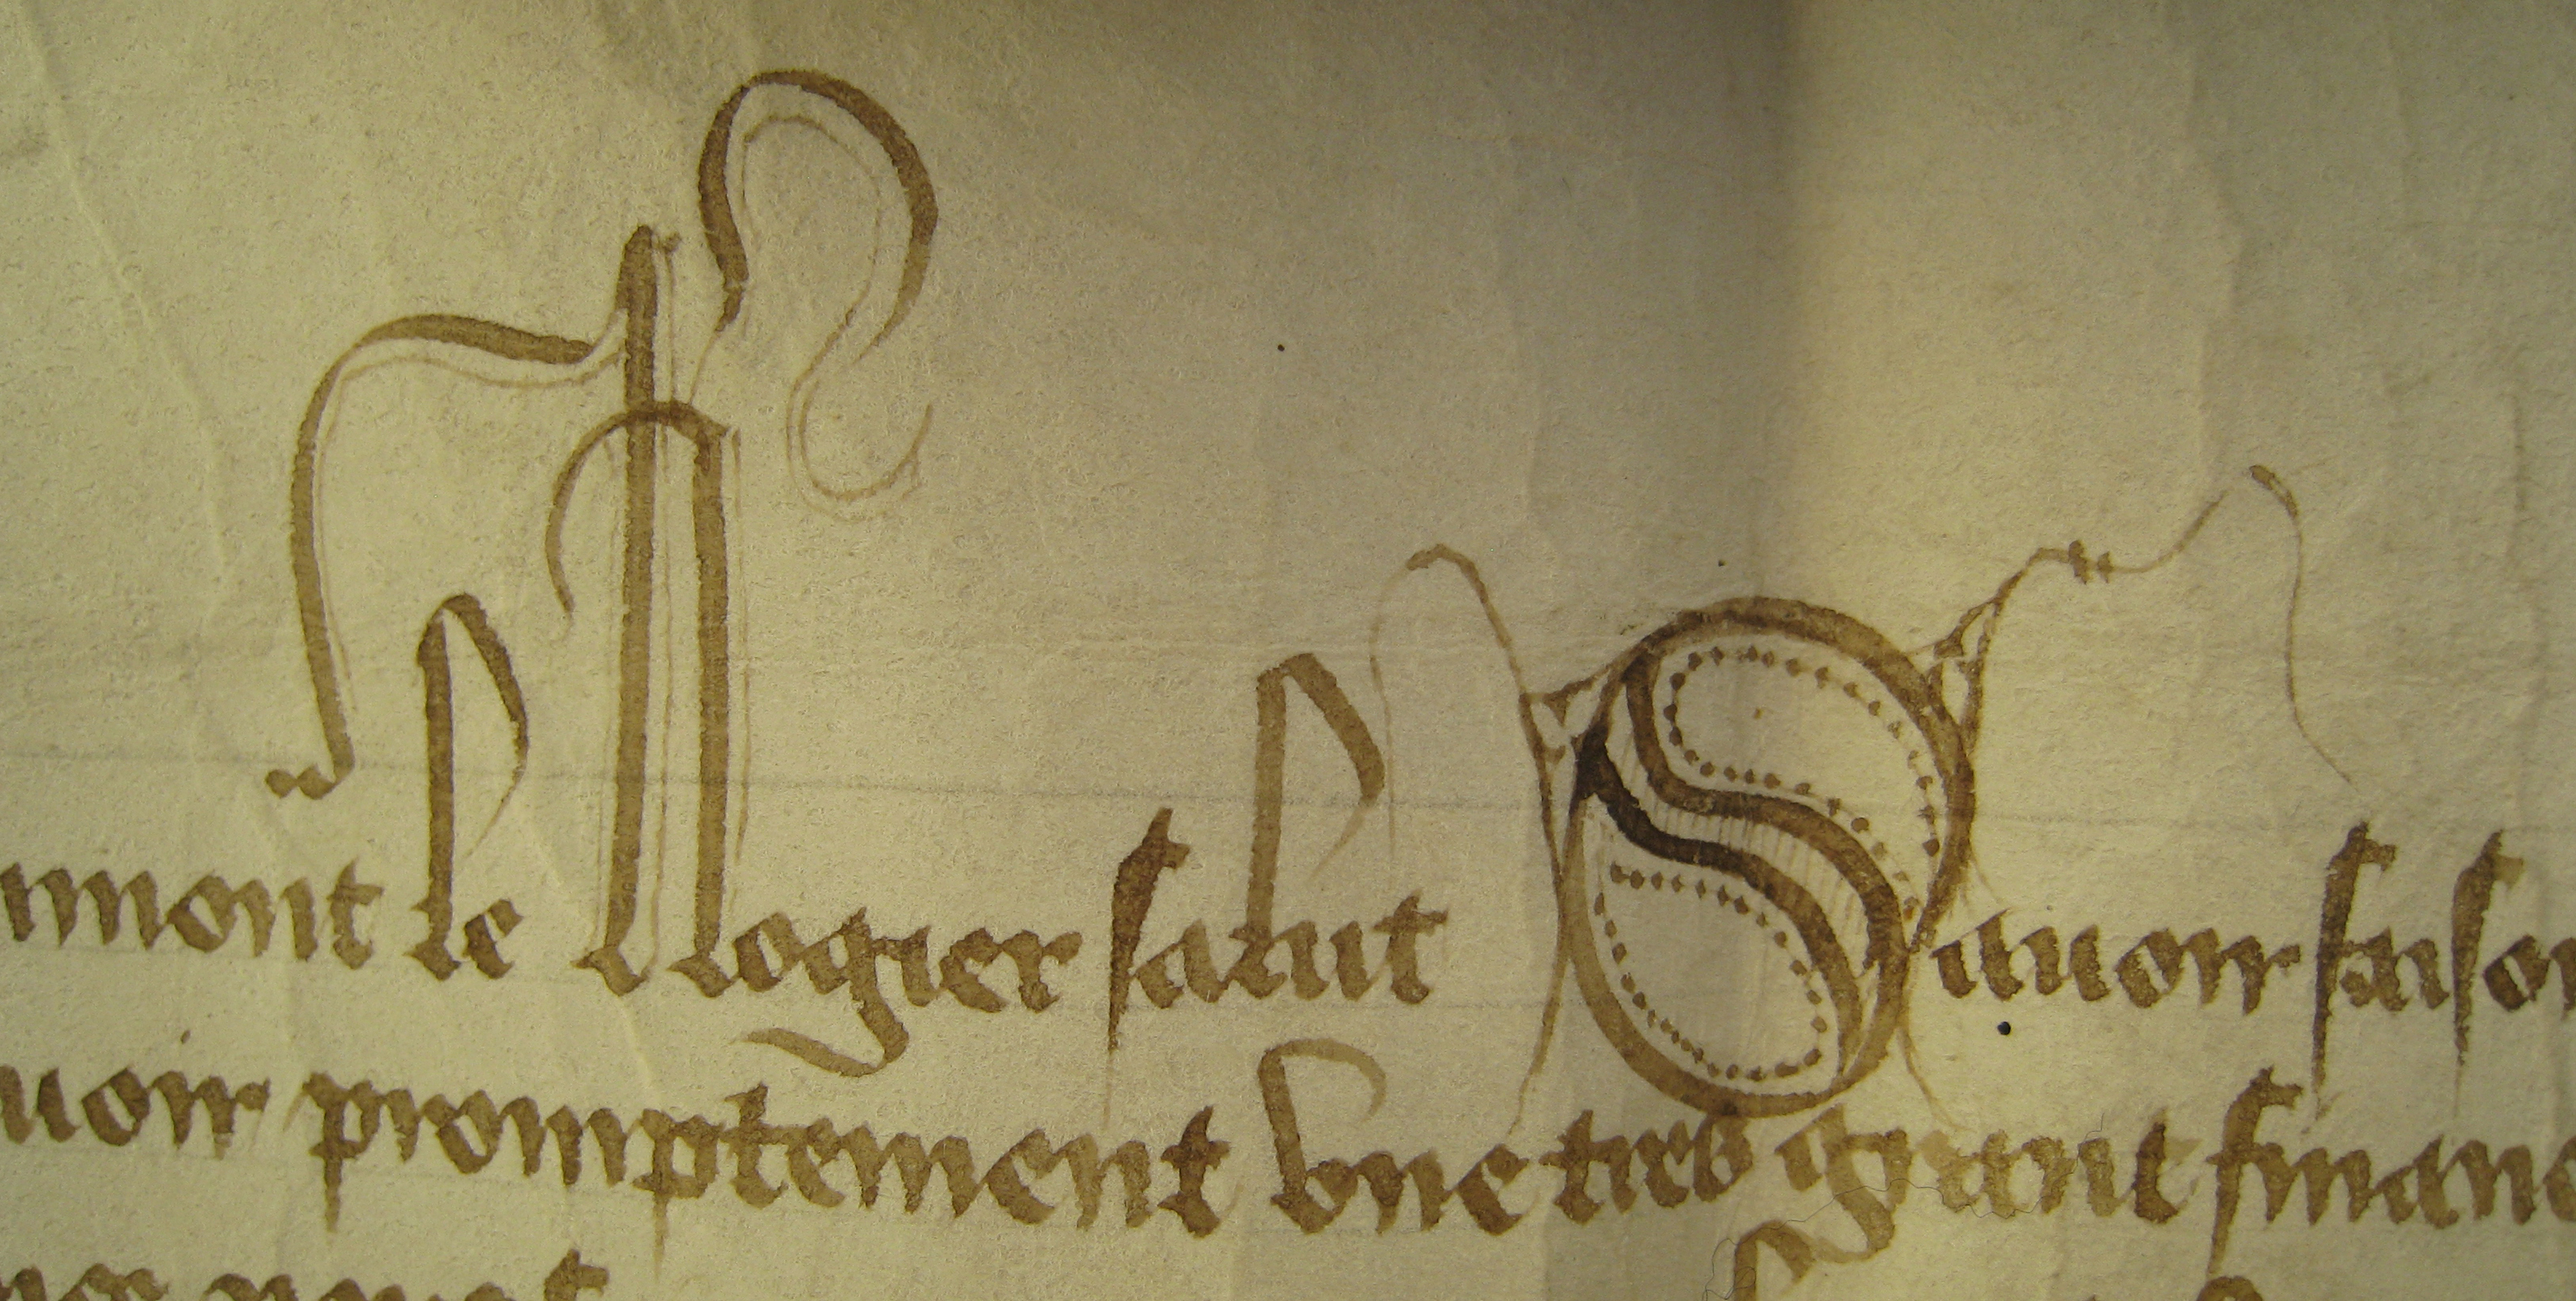 umont le Rogier salut Sauoir faison
uoir promptement vne tres grant financ